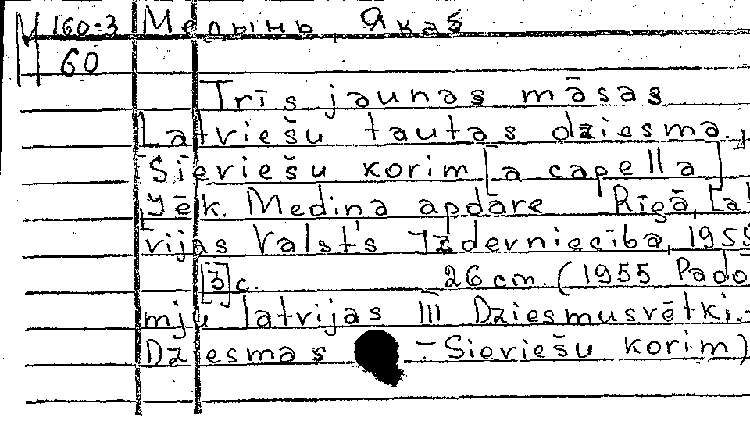 М 160-3 Медынь, Якаб
60
Trīs jaunas māsas
Latviešu tautas dziesma,
Sieviešu korim [a capella]
[Jēk. Mediņa apdare Rīgā, Lat
vijas Valsts Izdevniecība, 1955
[3] c. 26 cm (1955 Pado
mju latvijas III Dziesmusvētki.-
Dziesmas - Sieviešu korim)